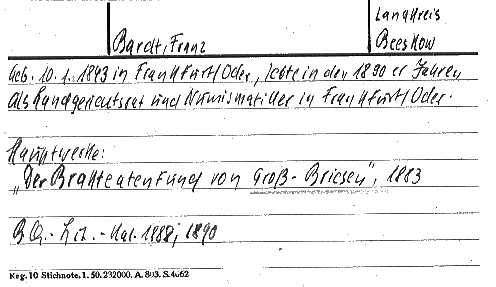 Landkreis
Bardt, Franz Beeskow
Geb. 10. 1. 1843 in Frankfurt/Oder, lebte in den 1890er Jahren
als Landgerichtsrat und Numismatiker in Frankfurt/Oder.
Hauptwerke:
"Der Brakteatenfund von Groß-Briesen", 1883
Lit.-Kal. 1988; 1890
Kog. 10 Stichnote. 1. 50. 232000. A. 803. S. 4662